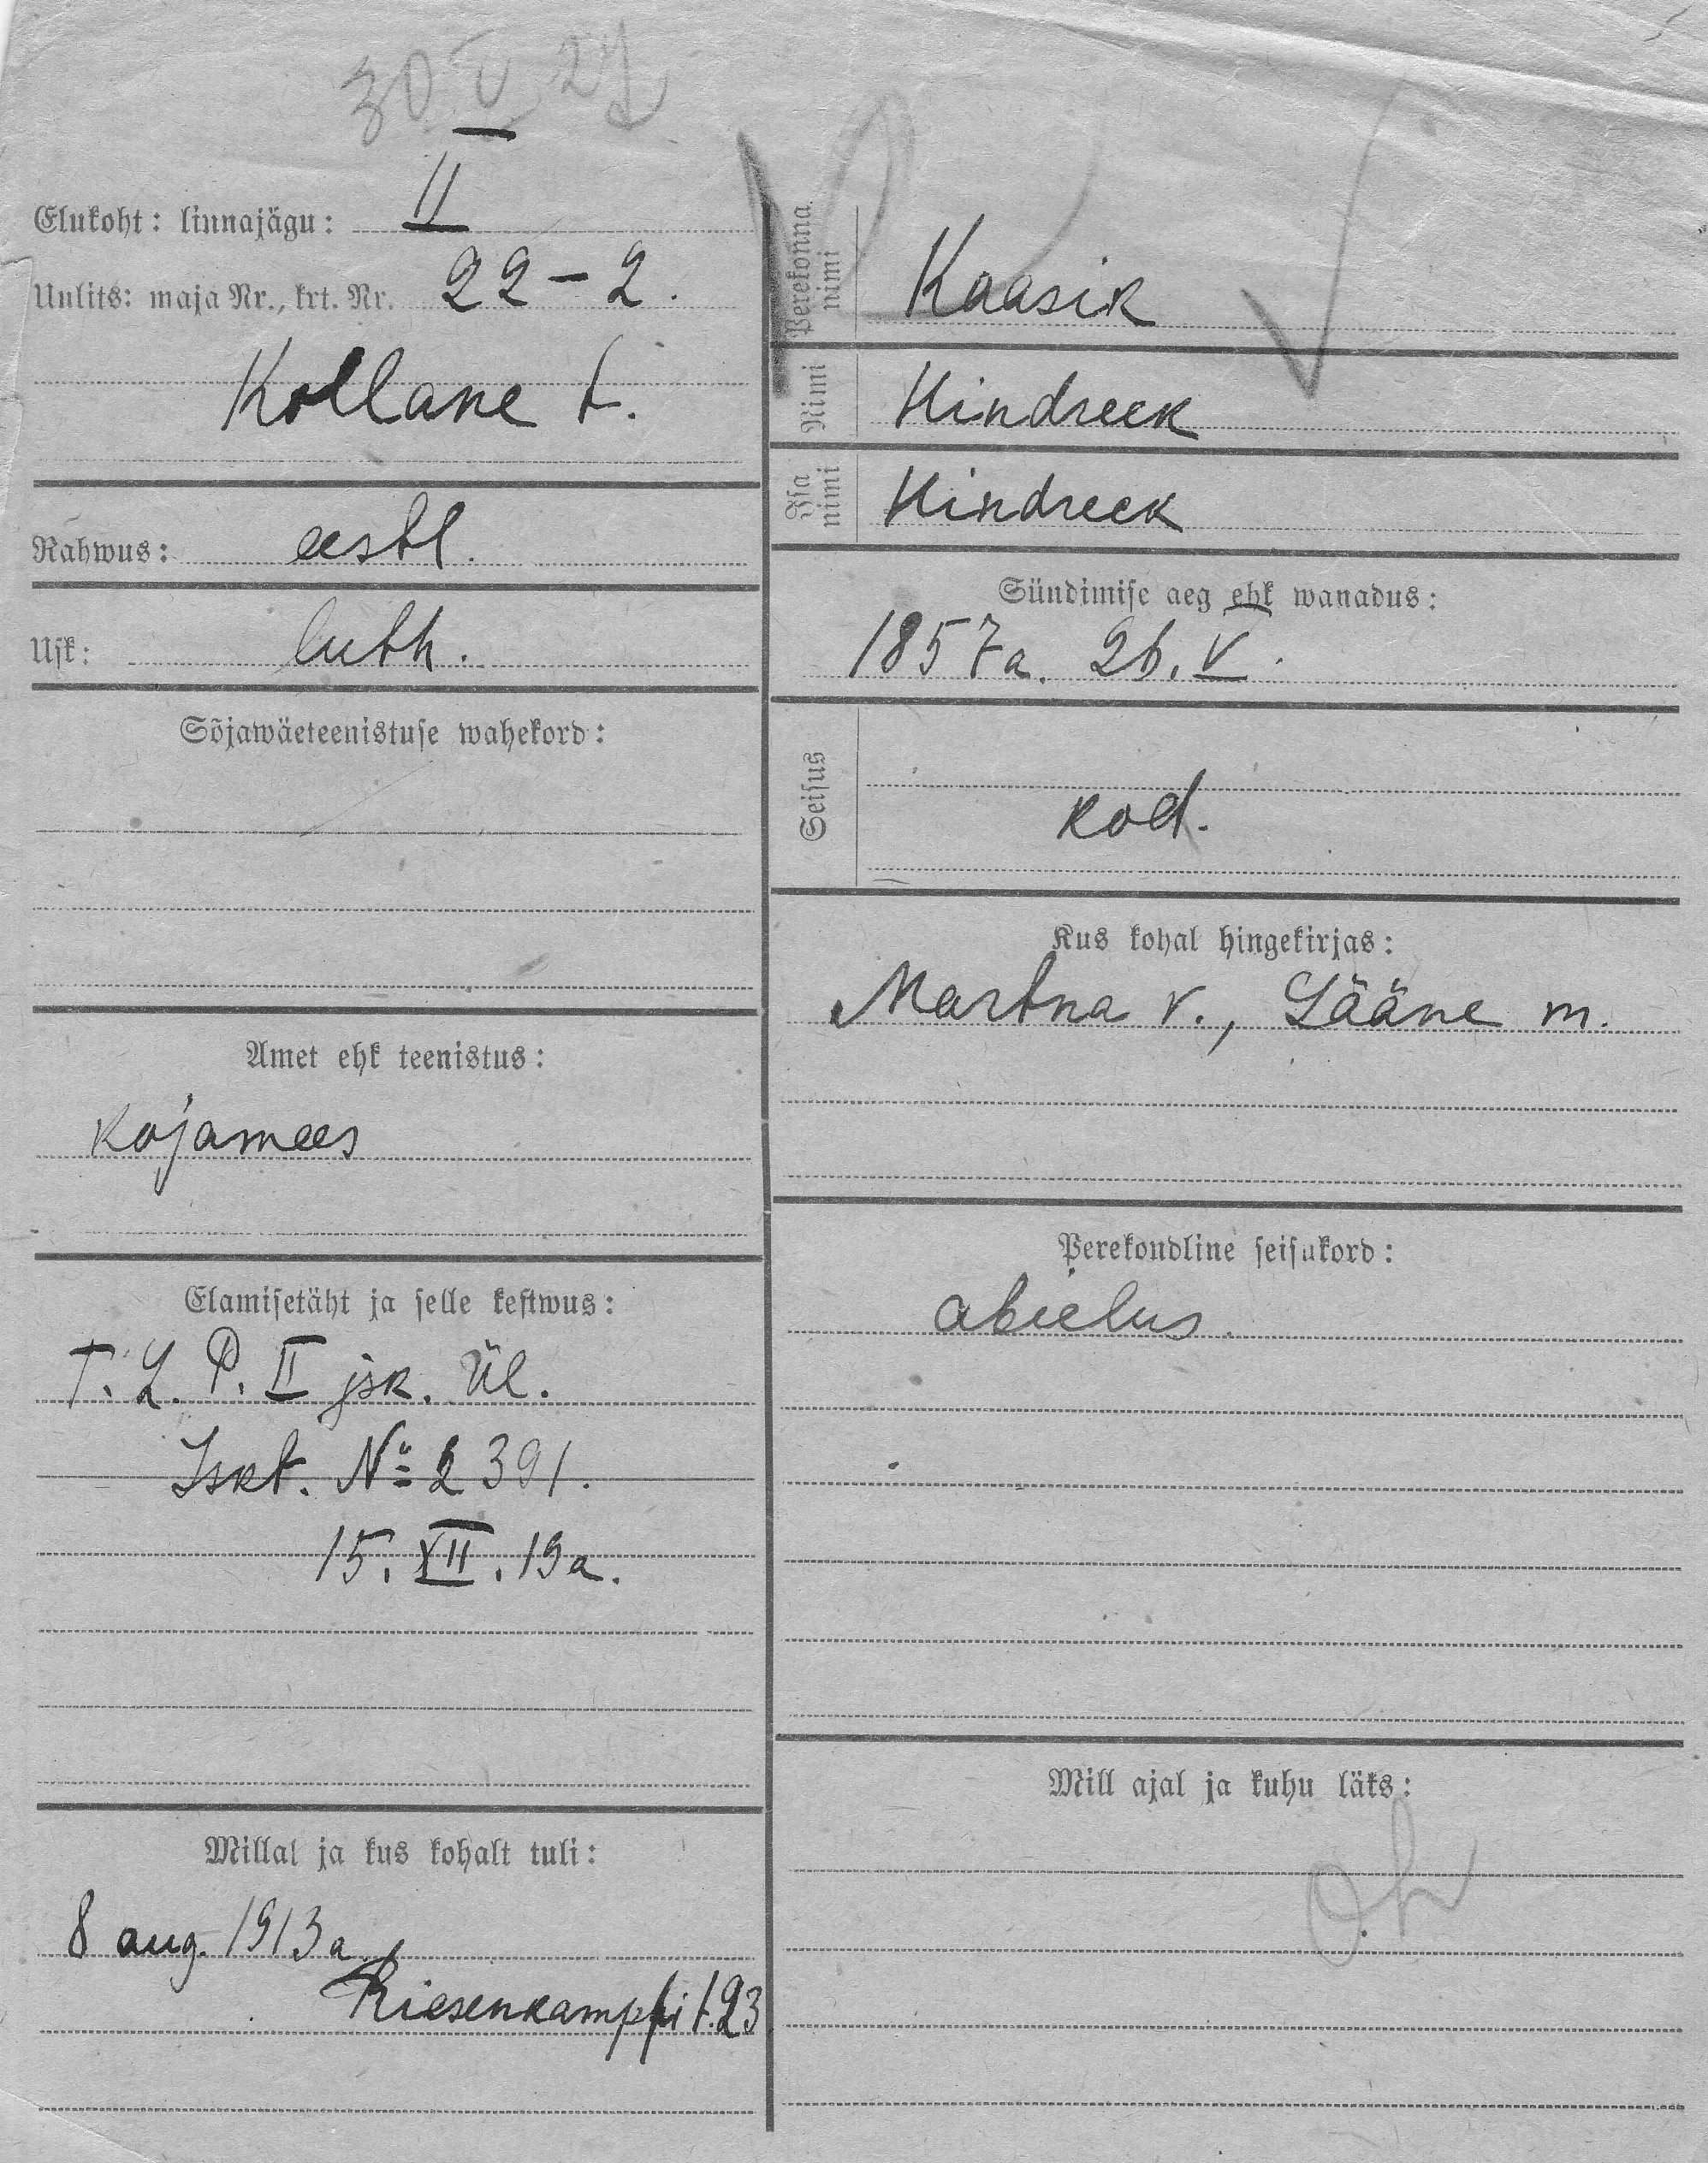 30 V 27
Elukoht: linnajägu: II
Uulits: maja Nr., krt. Nr. 22-2.
Kollane t.
Rahwus: eestl.
Usk: luth.
Sõjawäeteenistuse wahekord:
Amet ehk teenistus:
kojamees
Elamisetäht ja selle kestwus:
T. L. P. II jsk. Ül.
Iskt. № 2391.
15. XII. 19a.
Millal ja kus kohalt tuli:
8 aug. 1913 a.
Riesenkampfi t. 23
Perekonna nimi Kaasik
Nimi Hindreek
Isa nimi Hindreek
Sündimise aeg ehk wanadus:
1857a. 26. V.
Seisus
kod.
Kus kohal hingekirjas:
Martna v., Lääne m.
Perekondline seisukord:
abielus.
Mill ajal ja kuhu läks: